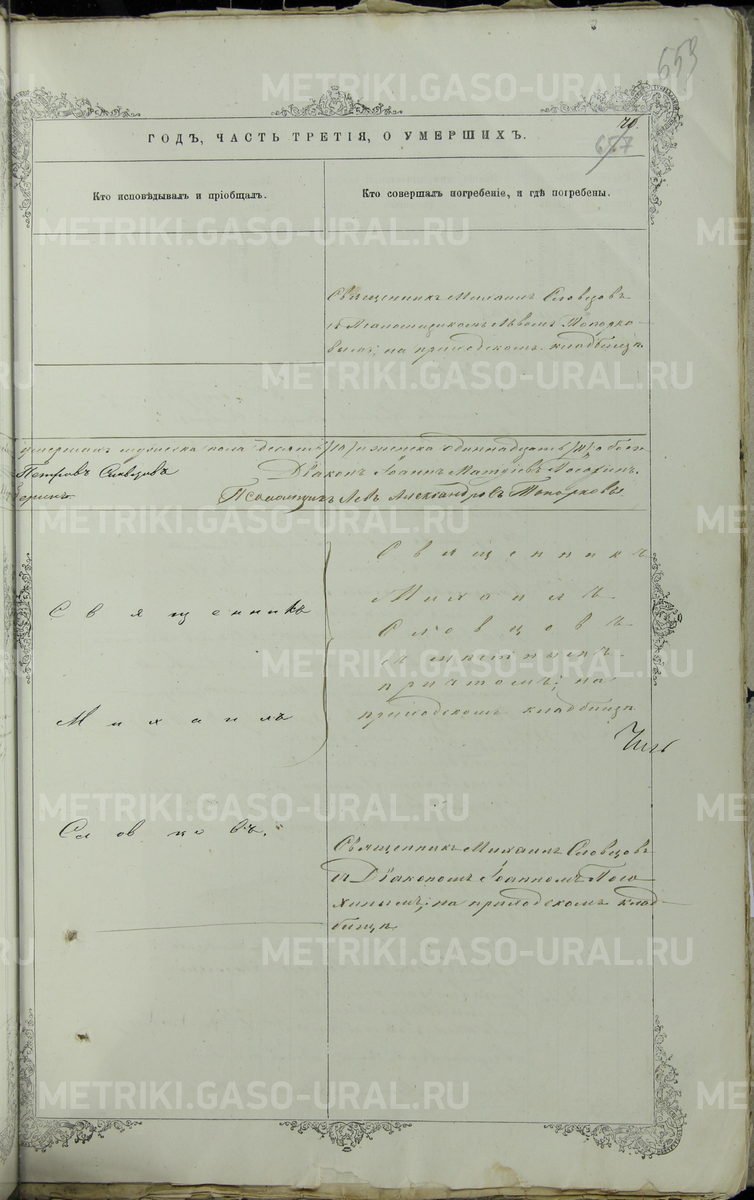 653
70.
657
ГОДЪ, ЧАСТЬ ТРЕТІЯ, О УМЕРШИХЪ.
Кто исповѣдывалъ и пріобщалъ.
Кто совершалъ погребеніе, и гдѣ погребены.
Священникъ Михаилъ Словцовъ
съ Псаломщикомъ Львомъ Топорко-
вымъ; на приходскомъ кладбищѣ.
умершихъ мужеска пола десять /10/ и женска одиннадцать /11/, а обоего
Петровъ Словцовъ
Діаконъ Іоаннъ Матѳіевъ
Псаломщикъ Левъ Александровъ Топорковъ
Священникъ
Михаилъ
Словцовъ.
Священникъ
Михаилъ
Словцовъ
съ
причтомъ; на
приходскомъ кладбищѣ
Священникъ Михаилъ Словцовъ
съ Діакономъ Іоанномъ
на приходскомъ клад-
бищѣ
METRIKI.GASO-URAL.RU